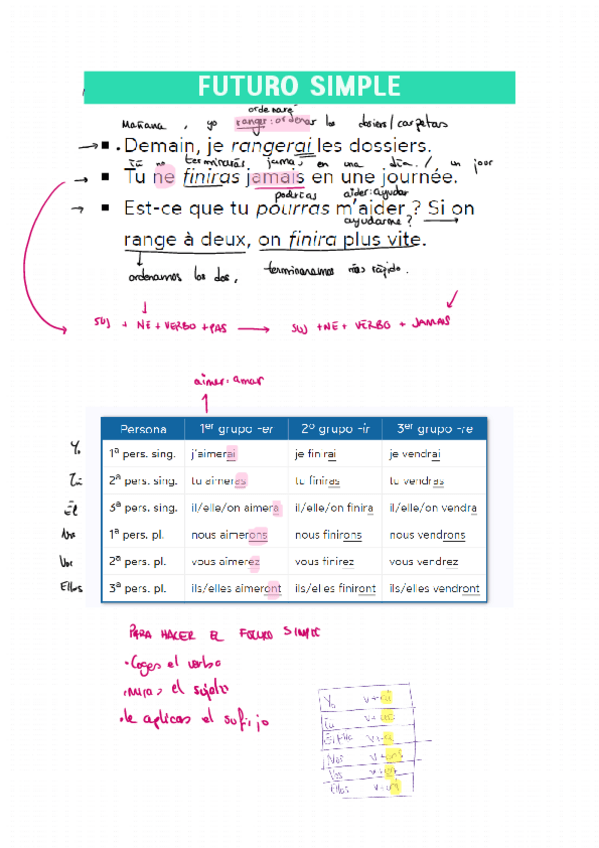 FUTURO SIMPLE
ordenaré
Mañana, yo ranger: ordenar los dosiers/carpetas
Demain, je rangerai les dossiers.
Tú no terminarás jamas en una dia. / un jour
Tu ne finiras jamais en une journée.
podrías aider: ayudar
Est-ce que tu pourras m'aider ? Si on
ayudarme?
range à deux, on finira plus vite.
ordenamos los dos, terminaramos más rápido.
SUJ + NE + VERBO + PAS → SUJ + NE + VERBO + JAMAIS
aimer: amar
Persona 1er grupo -er 2º grupo -ir 3er grupo -re
Yo 1ª pers. sing. j'aimerai je finrai je vendrai
Tú 2ª pers. sing. tu aimeras tu finiras tu vendras
Él 3ª pers. sing. il/elle/on aimera il/elle/on finira il/elle/on vendra
Nos 1ª pers. pl. nous aimerons nous finirons nous vendrons
Vos 2ª pers. pl. vous aimerez vous finirez vous vendrez
Ellos 3ª pers. pl. ils/elles aimeront ils/elles finiront ils/elles vendront
PARA HACER EL FUTURO SIMPLE
• Coges el verbo
• miras el sujeto
• le aplicas el sufijo
Yo V + ai
Tú V + as
Él/Ella V + a
Nos V + ons
Vos V + ez
Ellos V + ont